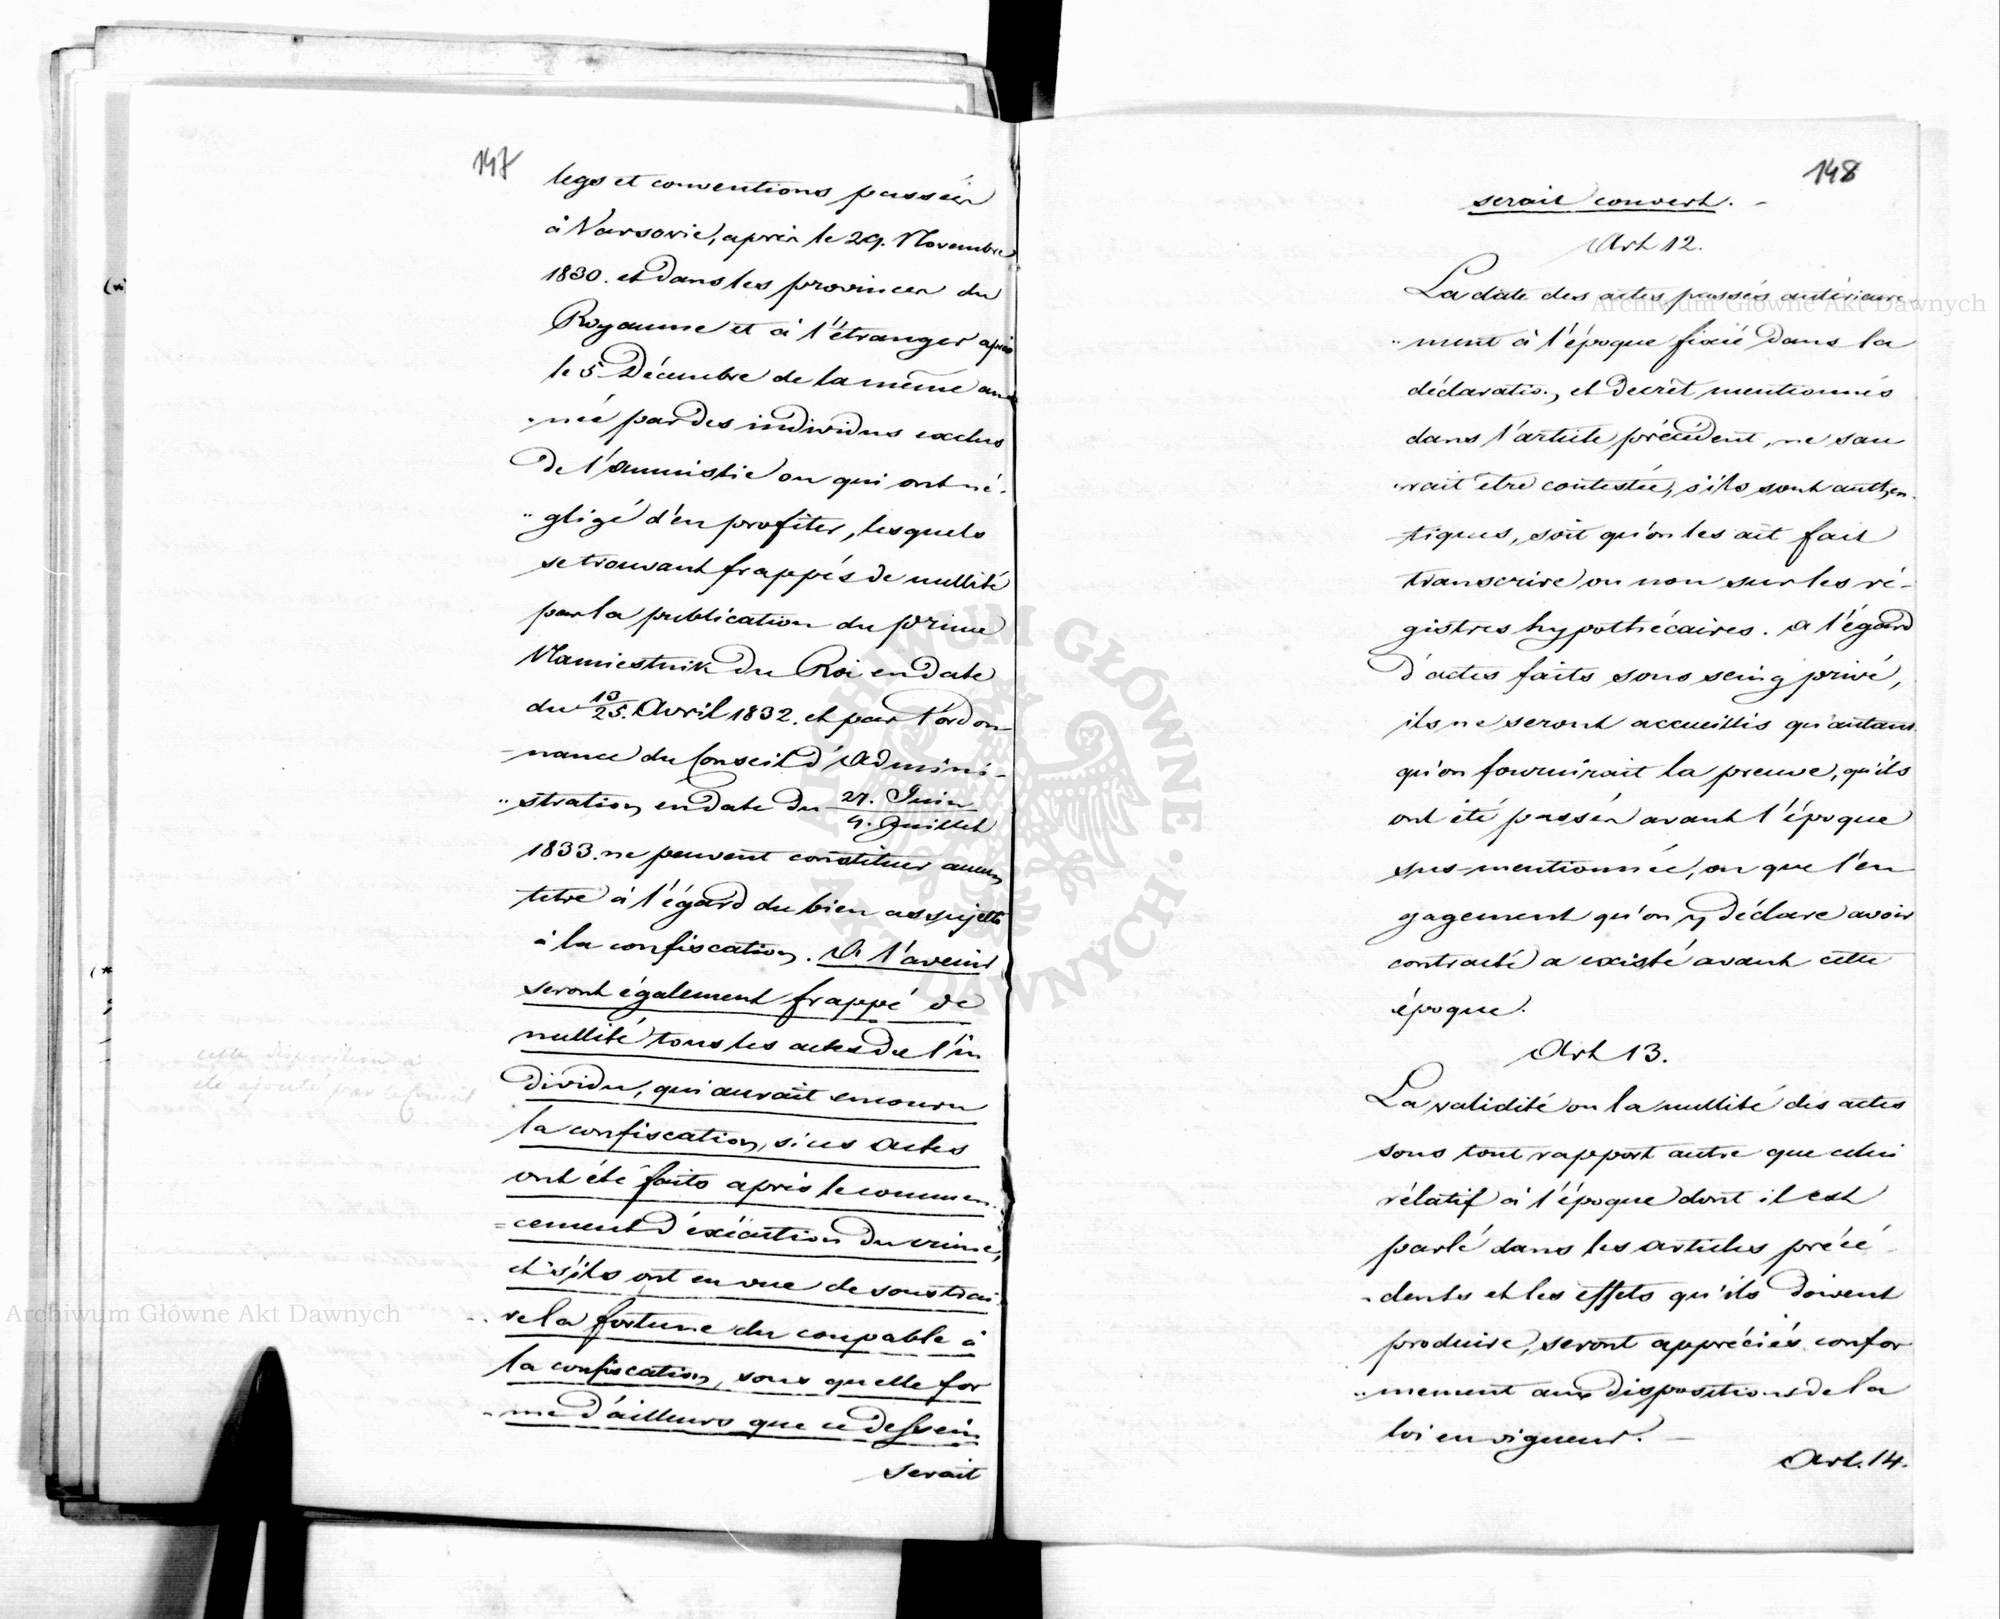 147
legs et conventions passées
à Varsovie, après le 29. Novembre
1830. et dans les provinces du
Royaume et à l'étranger après
le 5 Décembre de la même an
née par des individus exclus
de l'amnistie ou qui ont né-
gligé d'en profiter, lesquels
se trouvant frappés de nullité
par la publication du prince
Namiestnik du Roi en date
du 13/25. Avril 1832. et par l'ordon-
nance du Conseil d'Admini-
stration, en date du 27. Juin / 9. Juillet
1833. ne peuvent constituer aucun
titre à l'égard du bien assujetti
à la confiscation. A l'avenir
seront également frappé de
nullité tous les actes de l'in
dividu, qui aurait encouru
la confiscation, si ces actes
ont été faits après le commen
cement d'exécution du crime,
et s'ils ont en vue de soustrai
re la fortune du coupable à
la confiscation, sous quelle for
me d'ailleurs que ce dessein
serait
cette disposition a
été ajoutée par le Conseil
148
serait couvert. -
Art 12.
La date des actes passés antérieure
ment à l'époque fixée dans la
déclaration, et decrèt mentionnés
dans l'article précédent, ne sau
rait etre contestée, s'ils sont authen
tiques, soit qu'on les ait fait
transcrire ou non sur les ré-
gistres hypothécaires. A l'égard
d'actes faits sous seing privé,
ils ne seront accueillis qu'autant
qu'on fournirait la preuve, qu'ils
ont été passés avant l'époque
sus-mentionnée, ou que l'en
gagement qu'on y déclare avoir
contracté a existé avant cette
époque.
Art 13.
La validité ou la nullité des actes
sous tout rapport autre que celui
rélatif à l'époque dont il est
parlé dans les articles précé
dents et les effets qu'ils doivent
produire, seront appréciés confor
mement aux dispositions de la
loi en vigueur. -
Art. 14.
Archiwum Główne Akt Dawnych
Archiwum Główne Akt Dawnych
ARCHIWUM GŁÓWNE AKT DAWNYCH